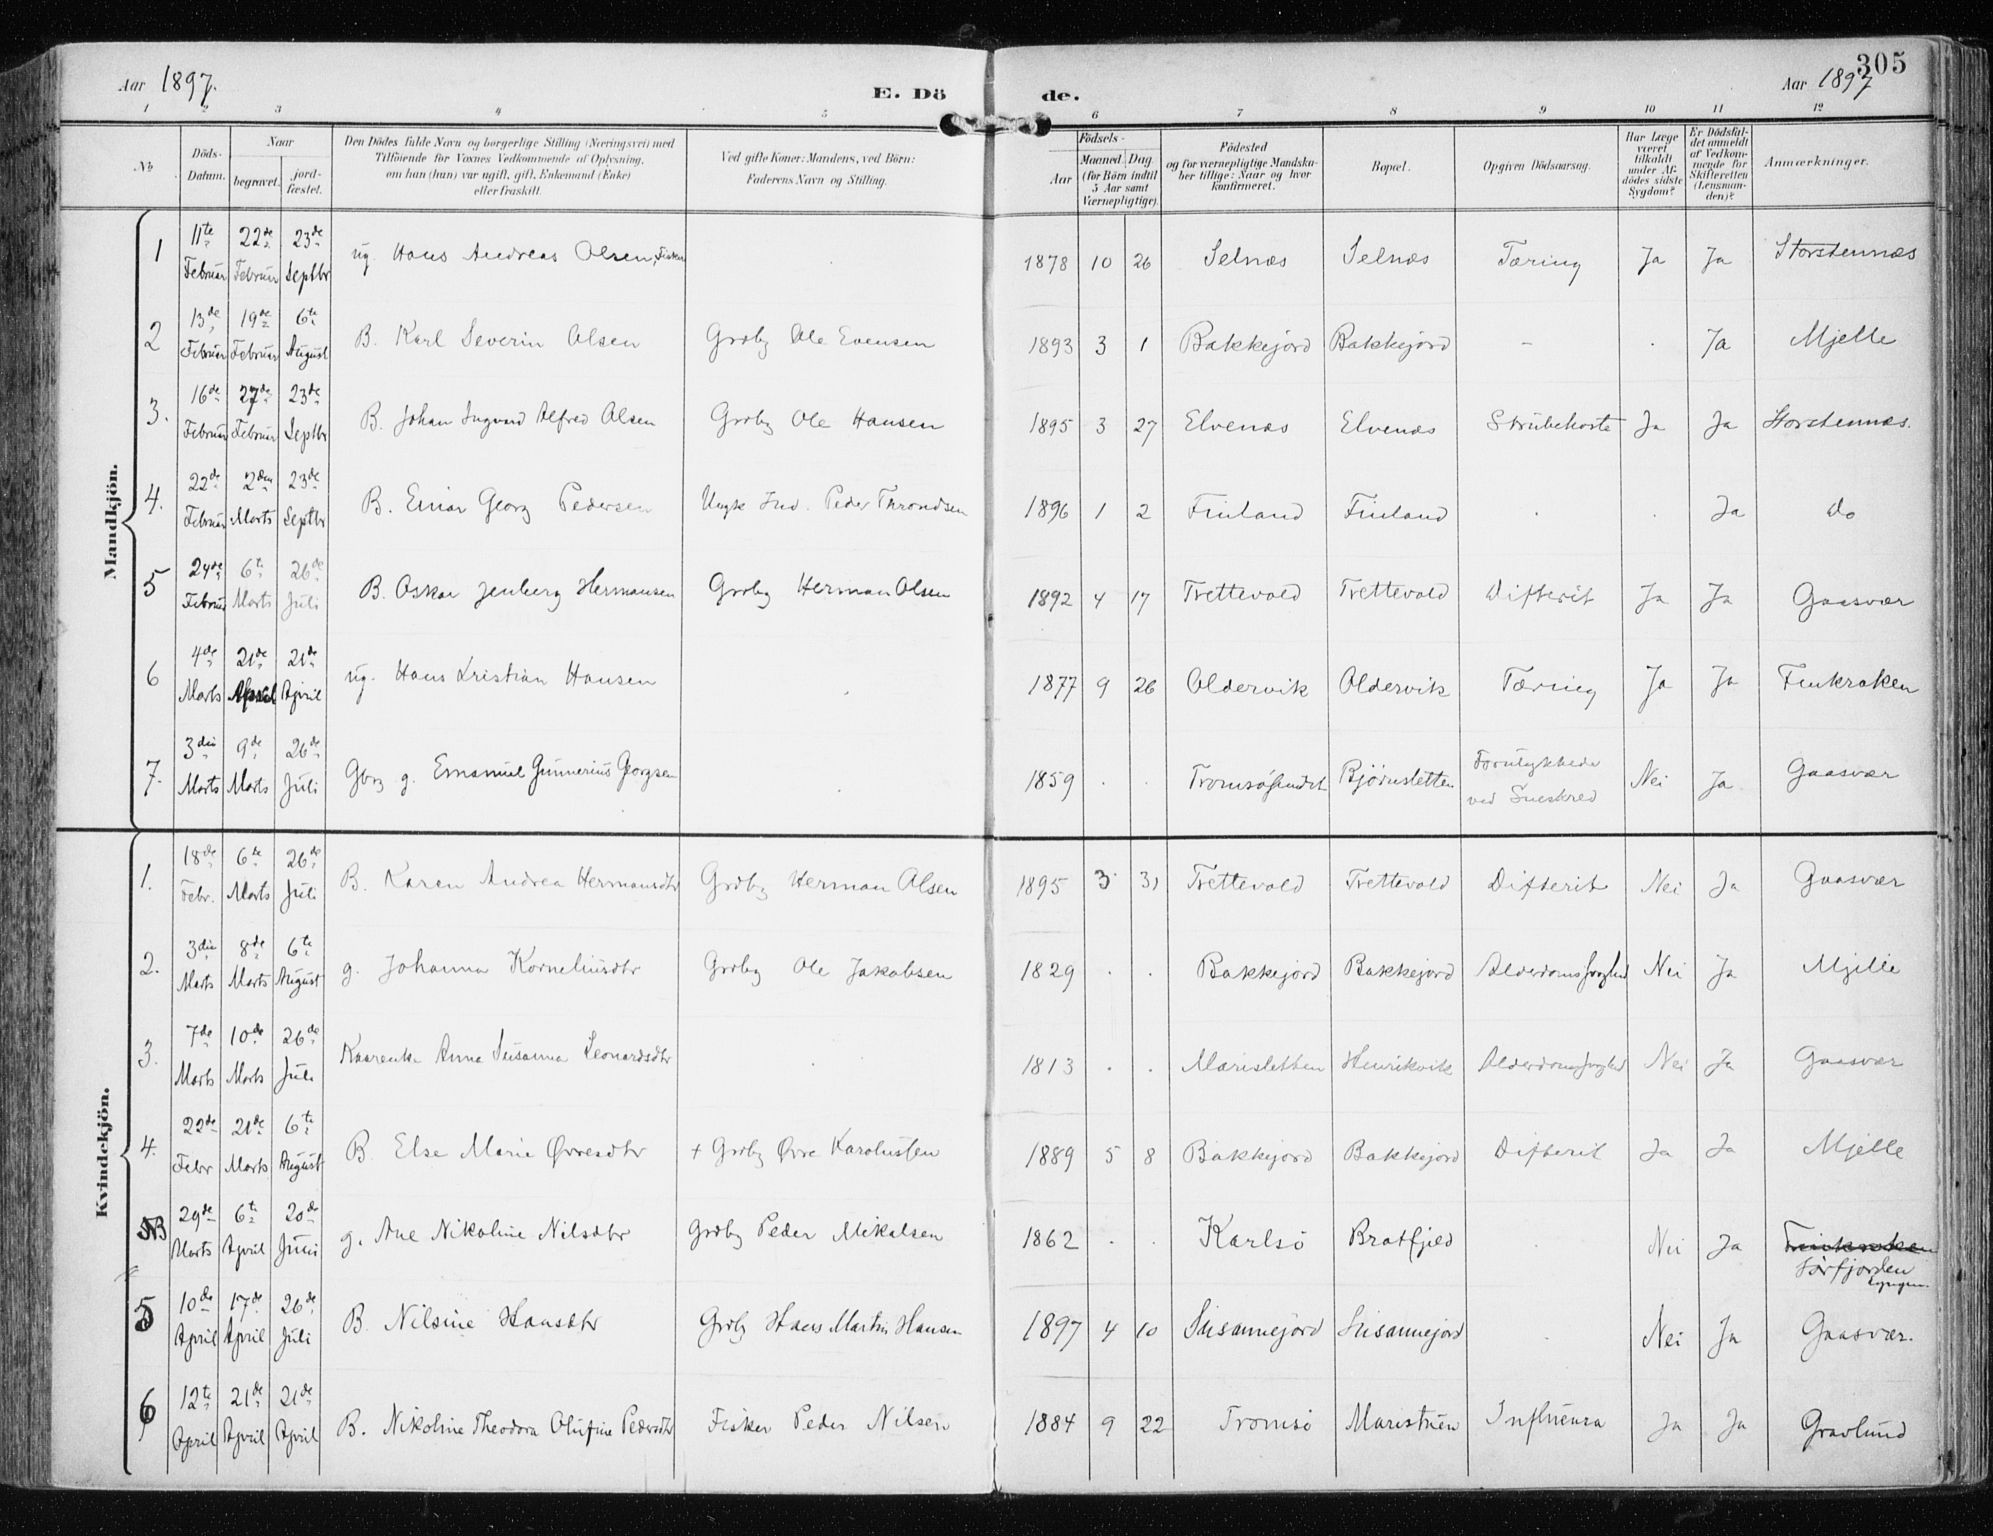 305
Aar 1897.
E. Dö
de.
Aar 1897
1 2 3 4 5 6 7 8 9 10 11 12
No. Döds-Datum. Naar begravet. jord-fæstet. Den Dödes fulde Navn og borgerlige Stilling (Næringsvei) med Tilföiende for Voxnes Vedkommende af Oplysning, om han (hun) var ugift, gift, Enkemand (Enke) eller fraskilt. Ved gifte Koner: Mandens, ved Börn: Faderens Navn og Stilling. Födsels- Aar Maaned. Dag (for Börn indtil 5 Aar samt Værnepligtige). Födested og for værnepligtige Mandskaber tillige: Naar og hvor konfirmeret. Bopæl. Opgiven Dödsaarsag. Har Læge været tilkaldt under Afdödes sidste Sygdom? Er Dödsfaldet anmeldt af Vedkommende for Skifteretten (Lensmanden)? Anmærkninger.
Mandkjön.
1 11te Februar 22de Februar 23de Septbr ug. Hans Andreas Olsen, Fisker 1878 10 26 Selnæs Selnæs Tæring Ja Ja Storstennæs
2 13de Februar 19de Februar 6te August B. Karl Severin Olsen Grdbg Ole Evensen 1893 3 1 Bakkejord Bakkejord - . Ja Mjelle
3. 16de Februar 27de Februar 23de Septbr B. Johan Ingvard Alfred Olsen Grdbg Ole Hansen 1895 3 27 Elvenæs Elvenæs Strubehoste Ja Ja Storstennæs.
4. 22de Februar 2den Marts 23de Septbr B. Einar Georg Pedersen Ungk Ind. Peder Throndsen 1896 1 2 Finland Finland . . Ja Do
5 24de Februar 6te Marts 26de Juli B. Oskar Jenberg Hermansen Grdbg Herman Olsen 1892 4 17 Trettevold Trettevold Difterit Ja Ja Gaasvær
6 4de Marts 21de April 21de April ug. Hans Kristian Hansen . 1877 9 26 Oldervik Oldervik Tæring Ja Ja Finkroken
7. 3die Marts 9de Marts 26de Juli Gbrg g. Emanuel Gunnerius Georgsen . 1859 . . Tromsøsundet Bjørnsletten Forulykkede ved Sneskred Nei Ja Gaasvær
Kvindekjön.
1. 18de Febr. 6te Marts 26de Juli B. Karen Andrea Hermansdtr Grdbg Herman Olsen 1895 3 31 Trettevold Trettevold Difterit Nei Ja Gaasvær
2. 3die Marts 8de Marts 6te August g. Johanna Korneliusdtr Grdbg Ole Jakobsen 1829 . . Bakkejord Bakkejord Alderdomssvaghed Nei Ja Mjelle
3. 7de Marts 10de Marts 26de Juli Kaarenke Anna Susanna Leonardsdtr . 1813 . . Marisletten Henrikvik Alderdomssvaghed Nei Ja Gaasvær
4. 22de Febr 21de Marts 6te August B. Else Marie Øvresdtr + Grdbg Øvre Karolussen 1889 5 8 Bakkejord Bakkejord Difterit Ja Ja Mjelle
NB 29de Marts 6te April 20de Juni g. Ane Nikoline Nilsdtr Grdbg Peder Mikalsen 1862 . . Karlsö Bratfjeld . Nei Ja Finkroken Sörfjorden Lyngen
5 10de April 17de April 26de Juli B. Nilsine Hansdtr Grdbg Hans Martin Hansen 1897 4 10 Susannejord Susannejord . Nei Ja Gaasvær.
6 12te April 21de April 21de April B. Nikoline Theodora Olufine Pedersdtr Fisker Peder Nilsen 1884 9 22 Tromsö Maristuen Influensa Ja Ja Gravlund